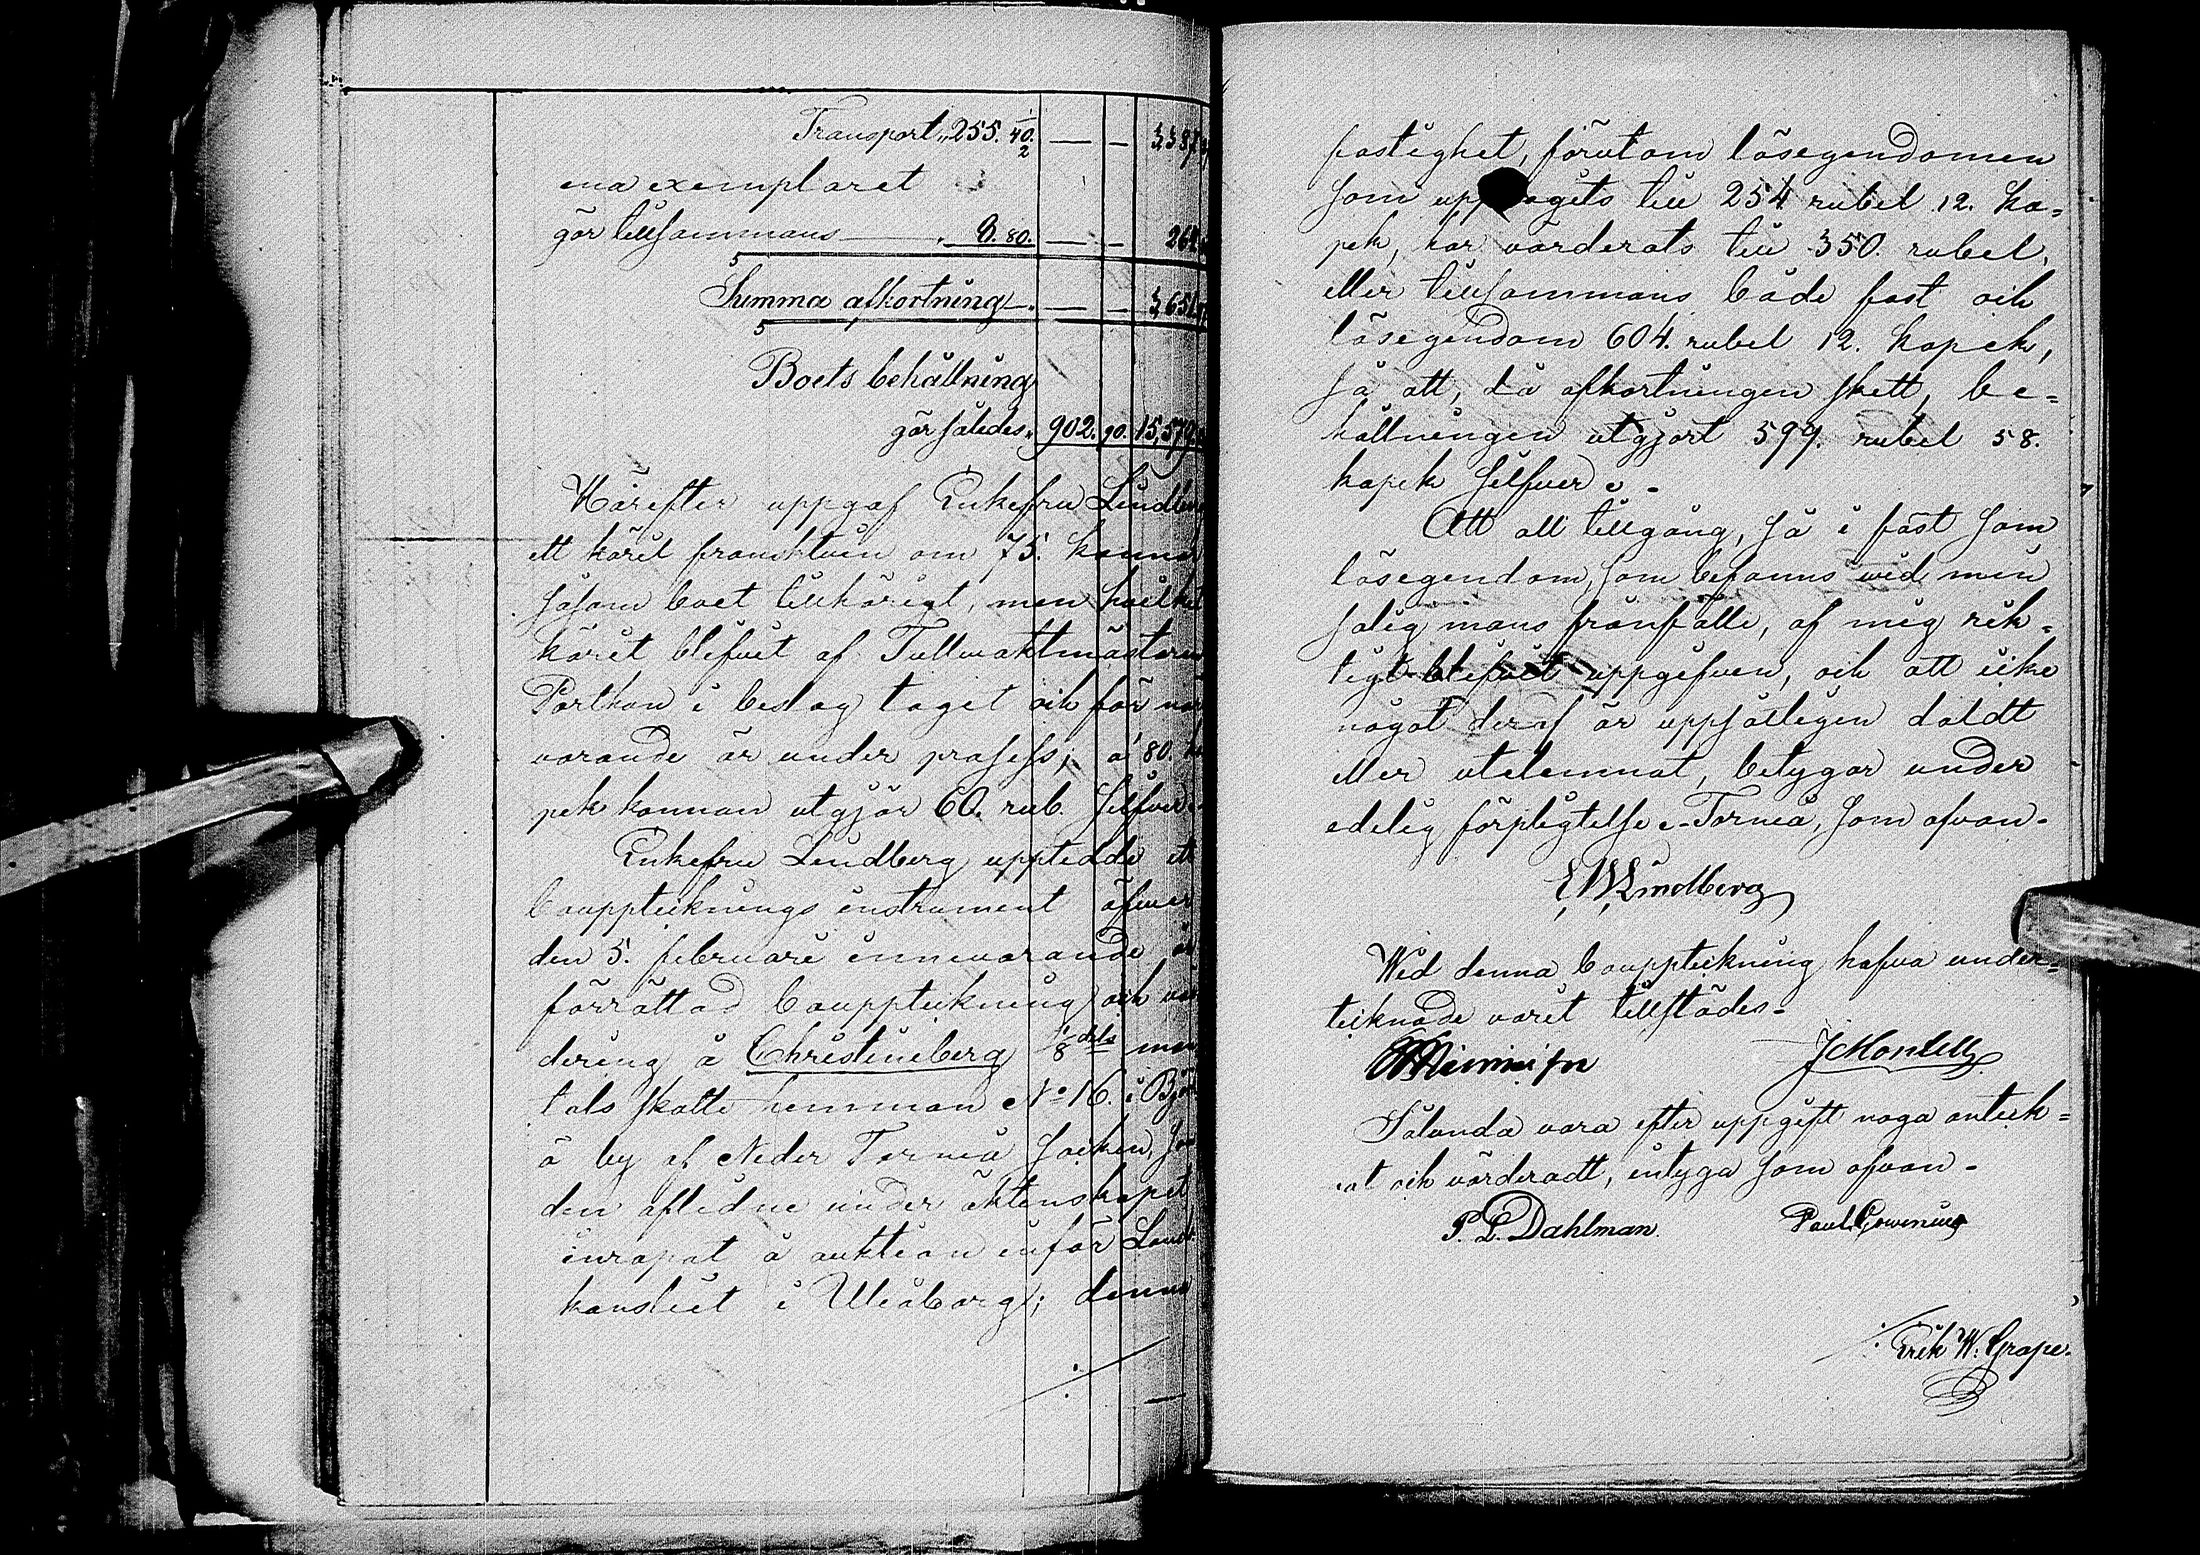 Transport „ 255. 40 1/2 — — 3387
ena exemplaret
gör tillsammans — „ 8. 80. — — 264
Summa afkortning — „ — — 3651
Boets behållning
gör således „ 902. 90. 15,579
Härefter uppgaf Enkefru Lindberg
ett käril franskt vin om 75. kannor
såsom boet tillhörigt, men hvilket
käril blifvit af Tullvaktmästaren
Porthan i beslag taget och för när
varande är under process; á 80. ko
pek kannan utgjör 60. rub. Silfver.
Enkefru Lindberg uppteddе ett
bouppteknings instrument öfver
den 5. februari innevarande år
förrättad bouppteckning och vär
dering å Christineberg 1/8 dels man
tals skatte hemman No 16. i Björk
ö by af Neder Torneå Socken, som
den aflidne under äktenskapet
inropat å auktion inför Lands
kansliet i Uleåborg; denna
fastighet, förutom lösegendomen
som upptagits till 254 rubel 12. ko=
pek, har värderats till 350. rubel,
eller tillsammans både fast och
lösegendom 604. rubel 12. kopek,
så att, då afkortningen skett, be=
hållningen utgjort 599. rubel 58.
kopek Silfver. -
Att all tillgång, så i fast som
lösegendom, som befanns vid min
salig mans frånfälle, af mig rik=
tigt blifvit uppgifven, och att icke
något deraf är uppsåtligen doldt
eller utelemnat, betygar under
edelig förpligtelse. Torneå, som ofvan -
E W Lindberg
Wid denna bouppteckning hafva under=
tecknade varit tillstädes -
J Montell
Sålunda vara efter uppgift noga anteck=
nat och värderadt, intyga som ofvan -
P. L. Dahlman. Paul
Erik W. Grape.